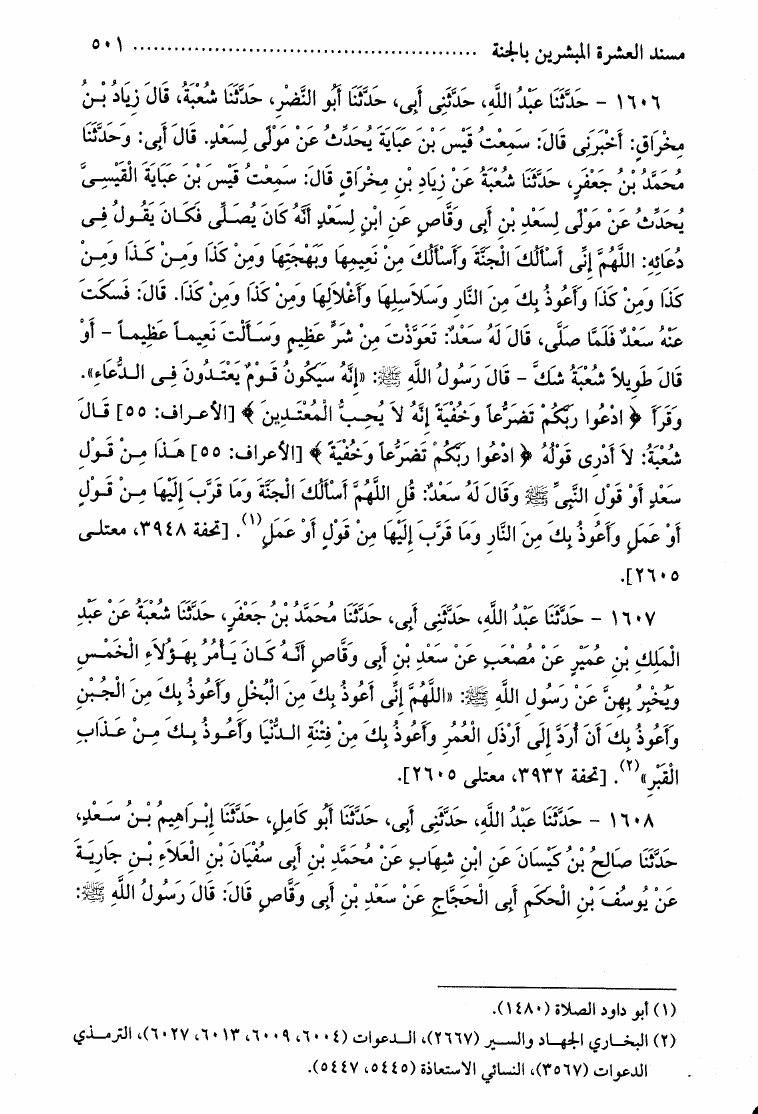 مسند العشرة المبشرين بالجنة ................................................ ٥٠١
١٦٠٦ – حَدَّثَنَا عَبْدُ اللَّهِ، حَدَّثَنِى أَبِى، حَدَّثَنَا أَبُو النَّضْرِ، حَدَّثَنَا شُعْبَةُ، قَالَ زِيَادُ بْنُ
مِخْرَاقٍ: أَخْبَرَنِى قَالَ: سَمِعْتُ قَيْسَ بْنَ عَبَايَةَ يُحَدِّثُ عَنْ مَوْلًى لِسَعْدٍ. قَالَ أَبِى: وَحَدَّثَنَا
مُحَمَّدُ بْنُ جَعْفَرٍ، حَدَّثَنَا شُعْبَةُ عَنْ زِيَادِ بْنِ مِخْرَاقٍ قَالَ: سَمِعْتُ قَيْسَ بْنَ عَبَايَةَ الْقَيْسِىَّ
يُحَدِّثُ عَنْ مَوْلًى لِسَعْدِ بْنِ أَبِى وَقَّاصٍ عَنِ ابْنٍ لِسَعْدٍ أَنَّهُ كَانَ يُصَلِّى فَكَانَ يَقُولُ فِى
دُعَائِهِ: اللَّهُمَّ إِنِّى أَسْأَلُكَ الْجَنَّةَ وَأَسْأَلُكَ مِنْ نَعِيمِهَا وَبَهْجَتِهَا وَمِنْ كَذَا وَمِنْ كَذَا وَمِنْ
كَذَا وَمِنْ كَذَا وَأَعُوذُ بِكَ مِنَ النَّارِ وَسَلَاسِلِهَا وَأَغْلَالِهَا وَمِنْ كَذَا وَمِنْ كَذَا. قَالَ: فَسَكَتَ
عَنْهُ سَعْدٌ فَلَمَّا صَلَّى، قَالَ لَهُ سَعْدٌ: تَعَوَّذْتَ مِنْ شَرٍّ عَظِيمٍ وَسَأَلْتَ نَعِيماً عَظِيماً – أَوْ
قَالَ طَوِيلاً شُعْبَةُ شَكَّ – قَالَ رَسُولُ اللَّهِ ﷺ: «إِنَّهُ سَيَكُونُ قَوْمٌ يَعْتَدُونَ فِى الدُّعَاءِ».
وَقَرَأَ ﴿ ادْعُوا رَبَّكُمْ تَضَرُّعاً وَخُفْيَةً إِنَّهُ لاَ يُحِبُّ الْمُعْتَدِينَ ﴾ [الأعراف: ٥٥] قَالَ
شُعْبَةُ: لاَ أَدْرِى قَوْلُهُ ﴿ ادْعُوا رَبَّكُمْ تَضَرُّعاً وَخُفْيَةً ﴾ [الأعراف: ٥٥] هَذَا مِنْ قَوْلِ
سَعْدٍ أَوْ قَوْلِ النَّبِىِّ ﷺ وَقَالَ لَهُ سَعْدٌ: قُلِ اللَّهُمَّ أَسْأَلُكَ الْجَنَّةَ وَمَا قَرَّبَ إِلَيْهَا مِنْ قَوْلٍ
أَوْ عَمَلٍ وَأَعُوذُ بِكَ مِنَ النَّارِ وَمَا قَرَّبَ إِلَيْهَا مِنْ قَوْلٍ أَوْ عَمَلٍ(١). [تحفة ٣٩٤٨، معتلى
٢٦٠٥].
١٦٠٧ – حَدَّثَنَا عَبْدُ اللَّهِ، حَدَّثَنِى أَبِى، حَدَّثَنَا مُحَمَّدُ بْنُ جَعْفَرٍ، حَدَّثَنَا شُعْبَةُ عَنْ عَبْدِ
الْمَلِكِ بْنِ عُمَيْرٍ عَنْ مُصْعَبٍ عَنْ سَعْدِ بْنِ أَبِى وَقَّاصٍ أَنَّهُ كَانَ يَأْمُرُ بِهَؤُلَاءِ الْخَمْسِ
وَيُخْبِرُ بِهِنَّ عَنْ رَسُولِ اللَّهِ ﷺ: «اللَّهُمَّ إِنِّى أَعُوذُ بِكَ مِنَ الْبُخْلِ وَأَعُوذُ بِكَ مِنَ الْجُبْنِ
وَأَعُوذُ بِكَ أَنْ أُرَدَّ إِلَى أَرْذَلِ الْعُمُرِ وَأَعُوذُ بِكَ مِنْ فِتْنَةِ الدُّنْيَا وَأَعُوذُ بِكَ مِنْ عَذَابِ
الْقَبْرِ»(٢). [تحفة ٣٩٣٢، معتلى ٢٦٠٥].
١٦٠٨ – حَدَّثَنَا عَبْدُ اللَّهِ، حَدَّثَنِى أَبِى، حَدَّثَنَا أَبُو كَامِلٍ، حَدَّثَنَا إِبْرَاهِيمُ بْنُ سَعْدٍ،
حَدَّثَنَا صَالِحُ بْنُ كَيْسَانَ عَنِ ابْنِ شِهَابٍ عَنْ مُحَمَّدِ بْنِ أَبِى سُفْيَانَ بْنِ الْعَلَاءِ بْنِ جَارِيَةَ
عَنْ يُوسُفَ بْنِ الْحَكَمِ أَبِى الْحَجَّاجِ عَنْ سَعْدِ بْنِ أَبِى وَقَّاصٍ قَالَ: قَالَ رَسُولُ اللَّهِ ﷺ:
(١) أبو داود الصلاة (١٤٨٠).
(٢) البخاري الجهاد والسير (٢٦٦٧)، الدعوات (٦٠٠٤، ٦٠٠٩، ٦٠١٣، ٦٠٢٧)، الترمذي
الدعوات (٣٥٦٧)، النسائي الاستعاذة (٥٤٤٥، ٥٤٤٧).